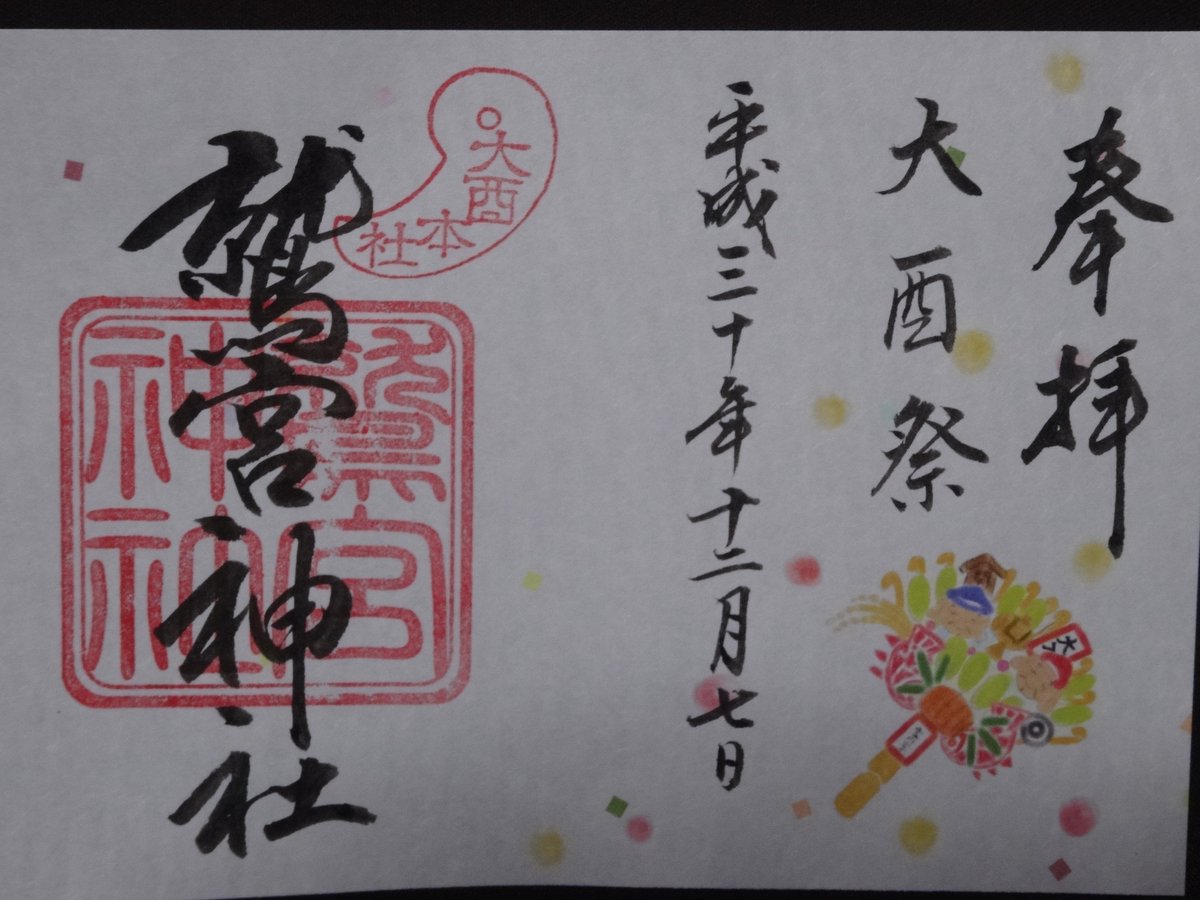 奉拝
大酉祭
平成三十年十二月七日
大酉
本社
鷲宮神社
鷲宮
神社